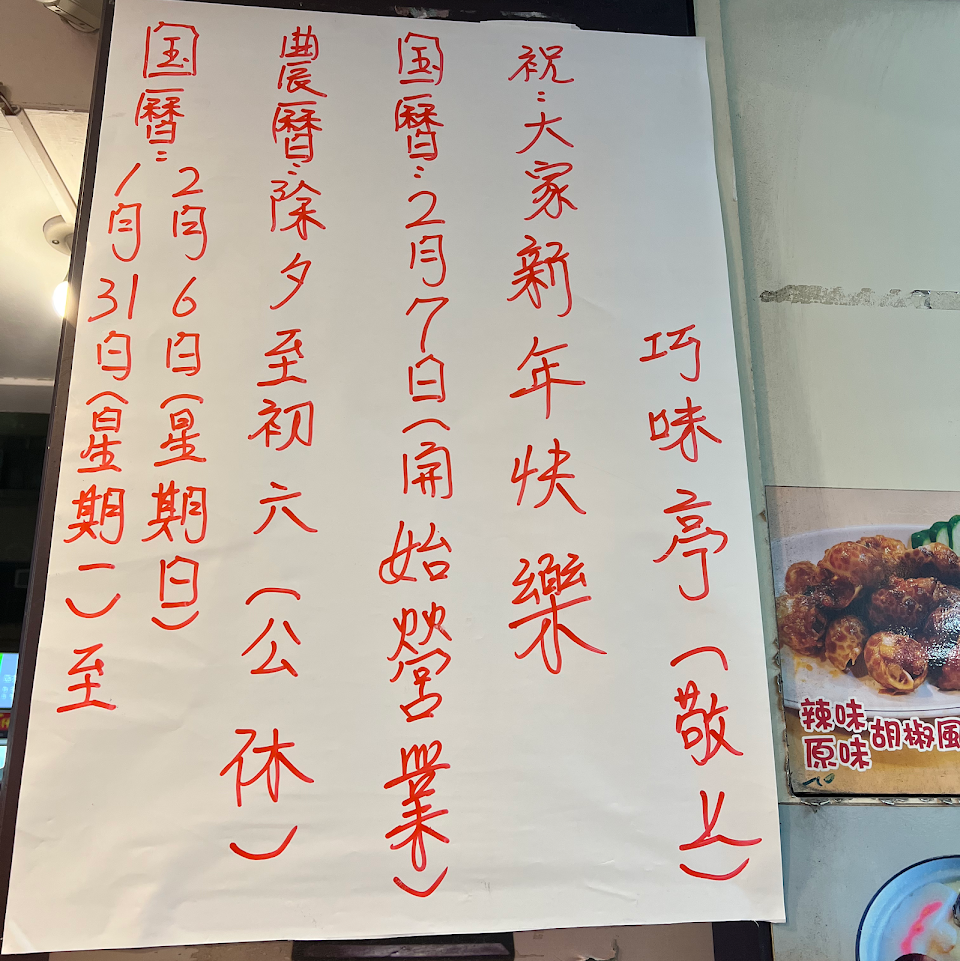 国曆：
1月31日(星期一)至
2月6日(星期日)
農曆：除夕至初六(公休)
国曆：2月7日(開始營業)
祝：大家新年快樂
巧味亭(敬上)
辣味
原味
胡椒風